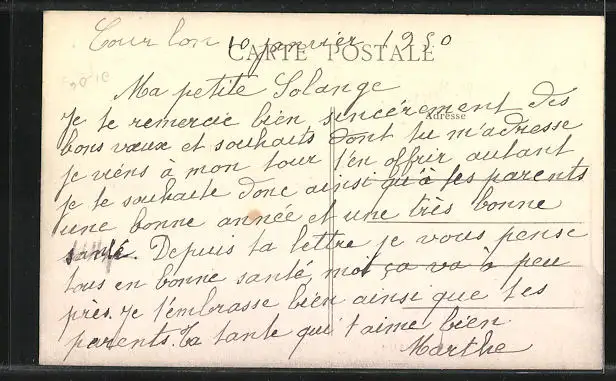 Tourlon 10 janvier 1950
CARTE POSTALE
Adresse
Ma petite Solange
Je te remercie bien sincérement des
bons vœux et souhaits dont tu m'adresse
je viens à mon tour t'en offrir autant
je te souhaite donc ainsi qu'à tes parents
une bonne année et une très bonne
santé. Depuis ta lettre je vous pense
tous en bonne santé, moi ça va à peu
près. Je t'embrasse bien ainsi que tes
parents. Ta tante qui t'aime bien
Marthe